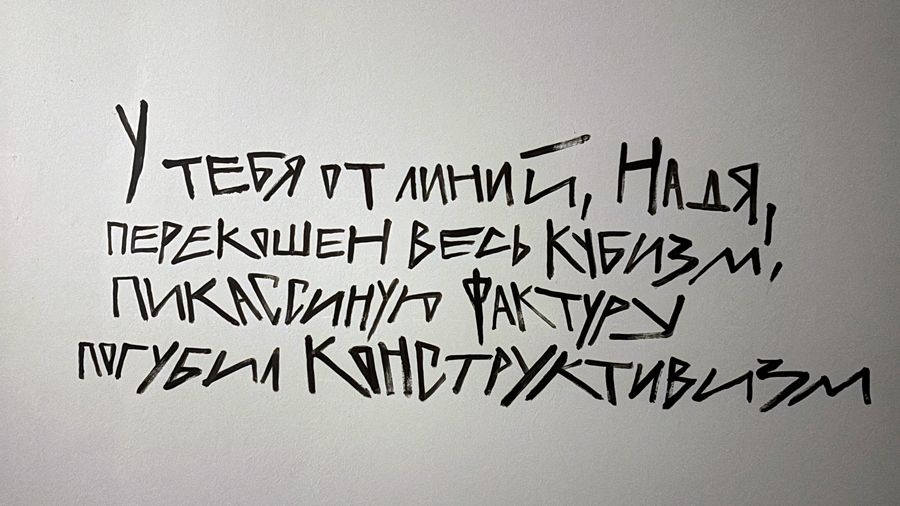 У тебя от линий, Надя,
перекошен весь кубизм,
пикассиную фактуру
погубил конструктивизм